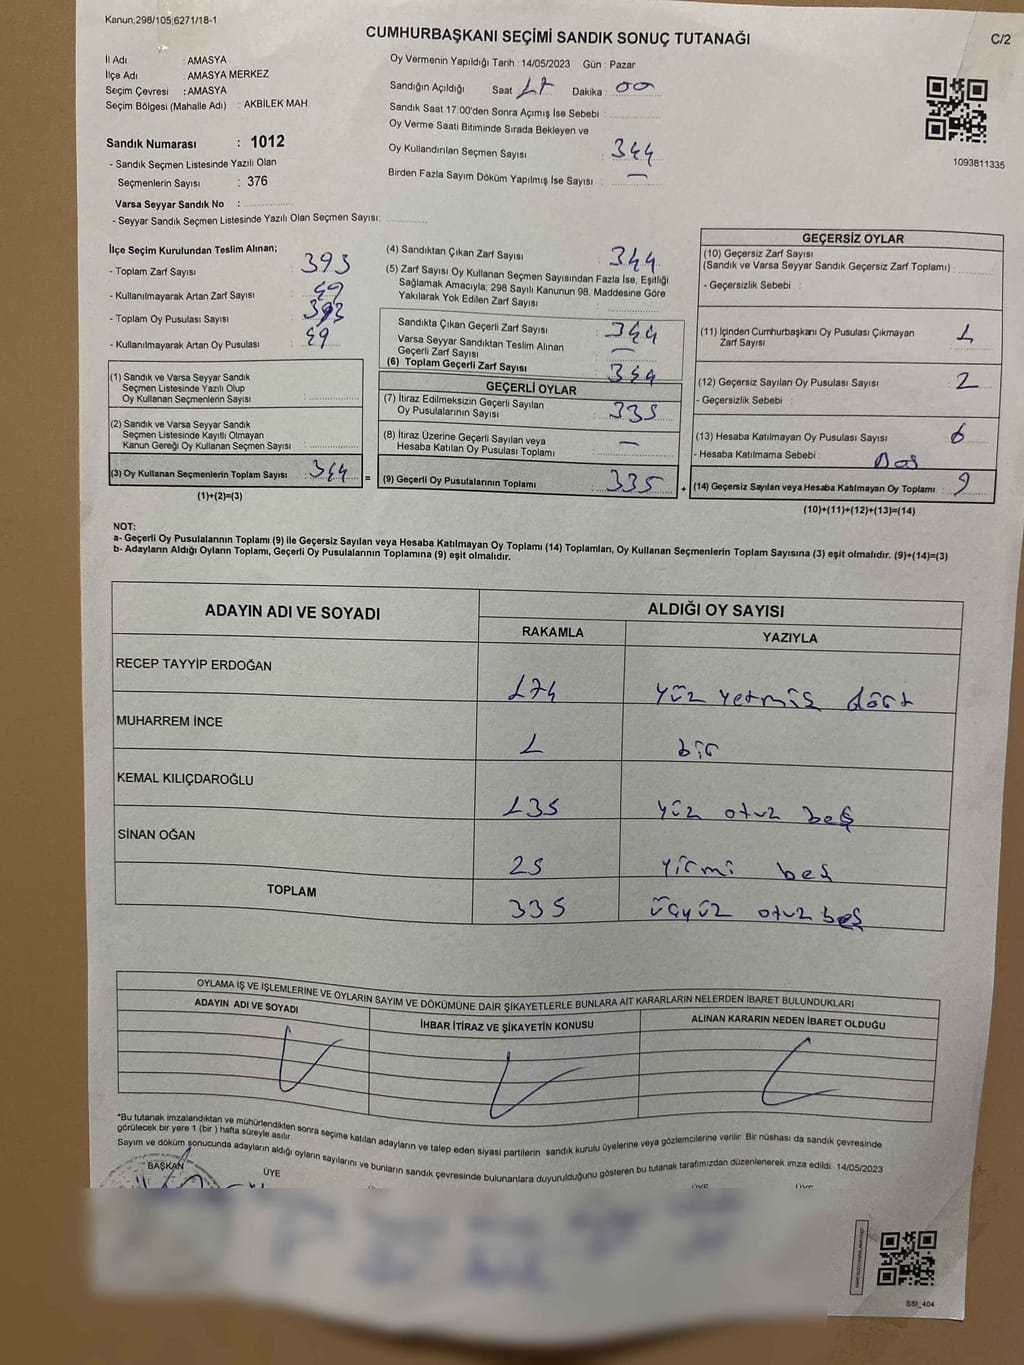 Kanun;298/105;6271/18-1
CUMHURBAŞKANI SEÇİMİ SANDIK SONUÇ TUTANAĞI
C/2
İl Adı : AMASYA
İlçe Adı : AMASYA MERKEZ
Seçim Çevresi : AMASYA
Seçim Bölgesi (Mahalle Adı) : AKBİLEK MAH.
Sandık Numarası : 1012
- Sandık Seçmen Listesinde Yazılı Olan
Seçmenlerin Sayısı : 376
Varsa Seyyar Sandık No :
- Seyyar Sandık Seçmen Listesinde Yazılı Olan Seçmen Sayısı:
Oy Vermenin Yapıldığı Tarih : 14/05/2023 Gün : Pazar
Sandığın Açıldığı Saat 17 Dakika : 00
Sandık Saat 17:00'den Sonra Açımış İse Sebebi :
Oy Verme Saati Bitiminde Sırada Bekleyen ve
Oy Kullandırılan Seçmen Sayısı : 344
Birden Fazla Sayım Döküm Yapılmış İse Sayısı : —
1093811335
İlçe Seçim Kurulundan Teslim Alınan;
- Toplam Zarf Sayısı : 393
- Kullanılmayarak Artan Zarf Sayısı : 49
- Toplam Oy Pusulası Sayısı : 393
- Kullanılmayarak Artan Oy Pusulası : 49
(1) Sandık ve Varsa Seyyar Sandık
Seçmen Listesinde Yazılı Olup
Oy Kullanan Seçmenlerin Sayısı :
(2) Sandık ve Varsa Seyyar Sandık
Seçmen Listesinde Kayıtlı Olmayan
Kanun Gereği Oy Kullanan Seçmen Sayısı :
(3) Oy Kullanan Seçmenlerin Toplam Sayısı : 344 =
(1)+(2)=(3)
(4) Sandıktan Çıkan Zarf Sayısı : 344
(5) Zarf Sayısı Oy Kullanan Seçmen Sayısından Fazla İse, Eşitliği
Sağlamak Amacıyla; 298 Sayılı Kanunun 98. Maddesine Göre
Yakılarak Yok Edilen Zarf Sayısı :
Sandıkta Çıkan Geçerli Zarf Sayısı : 344
Varsa Seyyar Sandıktan Teslim Alınan
Geçerli Zarf Sayısı : —
(6) Toplam Geçerli Zarf Sayısı : 344
GEÇERLİ OYLAR
(7) İtiraz Edilmeksizin Geçerli Sayılan
Oy Pusulalarının Sayısı : 335
(8) İtiraz Üzerine Geçerli Sayılan veya
Hesaba Katılan Oy Pusulası Toplamı : —
(9) Geçerli Oy Pusulalarının Toplamı : 335 +
GEÇERSİZ OYLAR
(10) Geçersiz Zarf Sayısı
(Sandık ve Varsa Seyyar Sandık Geçersiz Zarf Toplamı) :
- Geçersizlik Sebebi :
(11) İçinden Cumhurbaşkanı Oy Pusulası Çıkmayan
Zarf Sayısı : 1
(12) Geçersiz Sayılan Oy Pusulası Sayısı : 2
- Geçersizlik Sebebi :
(13) Hesaba Katılmayan Oy Pusulası Sayısı : 6
- Hesaba Katılmama Sebebi : Boş
(14) Geçersiz Sayılan veya Hesaba Katılmayan Oy Toplamı : 9
(10)+(11)+(12)+(13)=(14)
NOT:
a- Geçerli Oy Pusulalarının Toplamı (9) ile Geçersiz Sayılan veya Hesaba Katılmayan Oy Toplamı (14) Toplamları, Oy Kullanan Seçmenlerin Toplam Sayısına (3) eşit olmalıdır. (9)+(14)=(3)
b- Adayların Aldığı Oyların Toplamı, Geçerli Oy Pusulalarının Toplamına (9) eşit olmalıdır.
ADAYIN ADI VE SOYADI
ALDIĞI OY SAYISI
RAKAMLA YAZIYLA
RECEP TAYYİP ERDOĞAN 174 yüz yetmiş dört
MUHARREM İNCE 1 bir
KEMAL KILIÇDAROĞLU 135 yüz otuz beş
SİNAN OĞAN 25 yirmi beş
TOPLAM 335 üçyüz otuz beş
OYLAMA İŞ VE İŞLEMLERİNE VE OYLARIN SAYIM VE DÖKÜMÜNE DAİR ŞİKAYETLERLE BUNLARA AİT KARARLARIN NELERDEN İBARET BULUNDUKLARI
ADAYIN ADI VE SOYADI İHBAR İTİRAZ VE ŞİKAYETİN KONUSU ALINAN KARARIN NEDEN İBARET OLDUĞU
*Bu tutanak imzalandıktan ve mühürlendikten sonra seçime katılan adayların ve talep eden siyasi partilerin sandık kurulu üyelerine veya gözlemcilerine verilir. Bir nüshası da sandık çevresinde
görülecek bir yere 1 (bir) hafta süreyle asılır.
Sayım ve döküm sonucunda adayların aldığı oyların sayılarını ve bunların sandık çevresinde bulunanlara duyurulduğunu gösteren bu tutanak tarafımızdan düzenlenerek imza edildi. 14/05/2023
BAŞKAN ÜYE ÜYE ÜYE
SSI_404